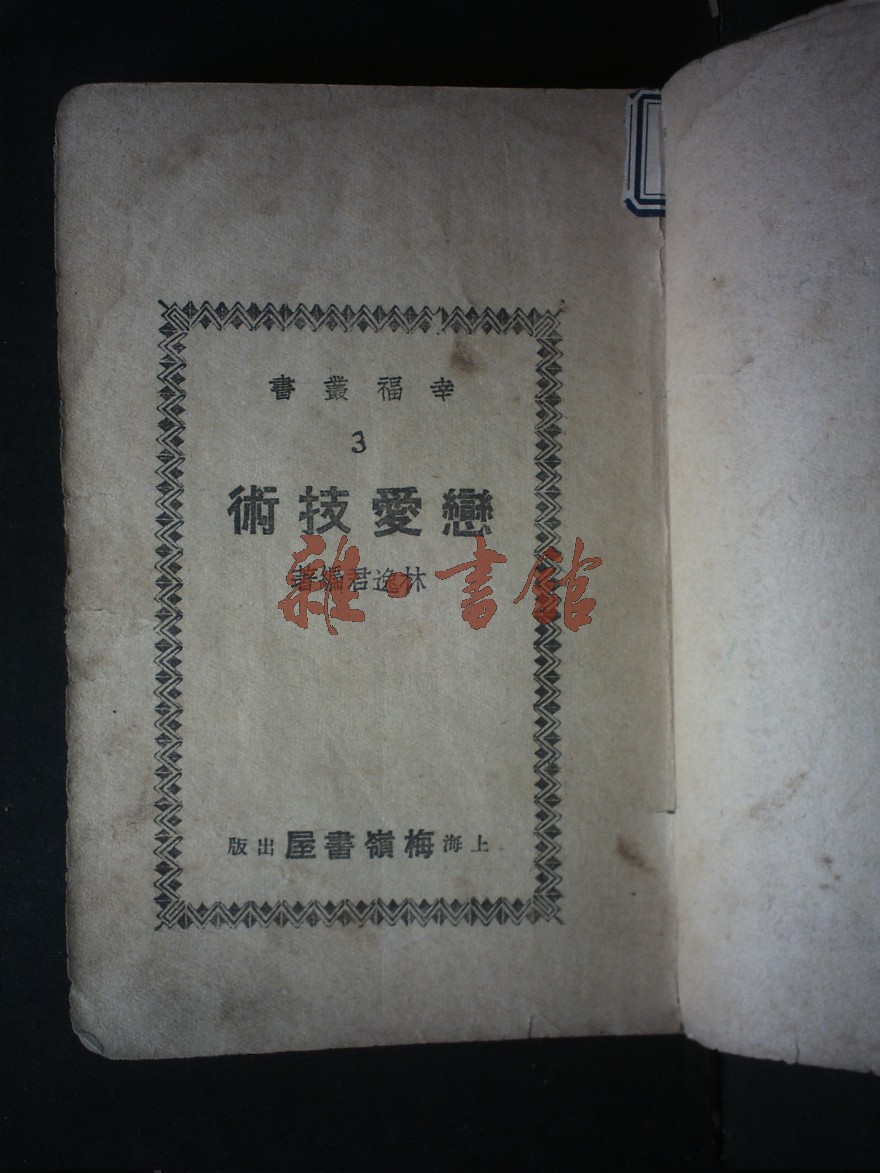 幸福叢書
3
戀愛技術
林逸君編著
雜·書館
上海梅嶺書屋出版